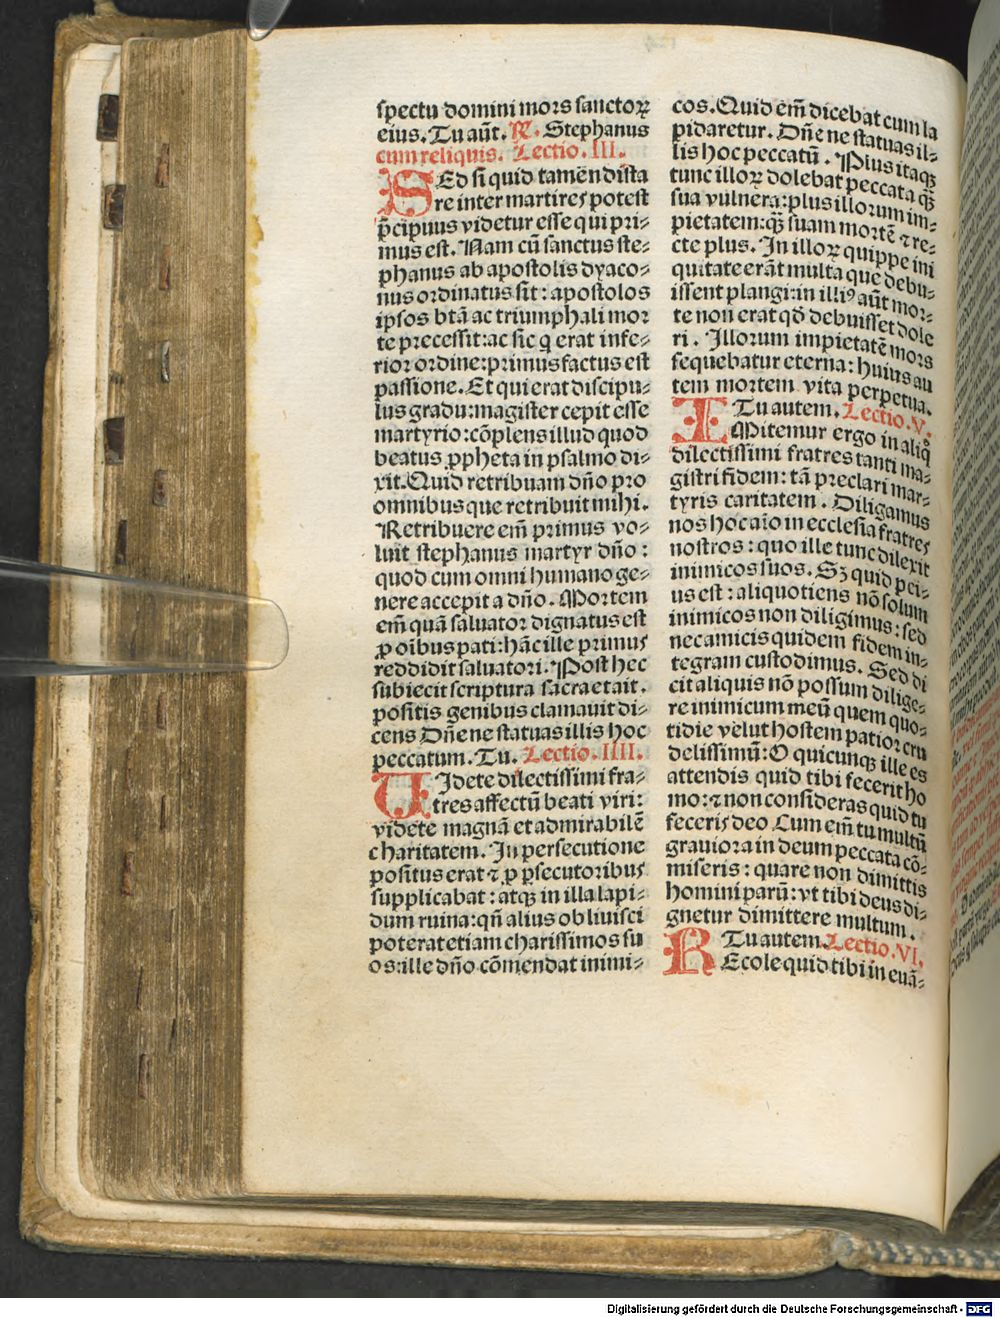 spectu domini mors sanctoꝝ
eius. Tu aūt. ℟. Stephanus
cum reliquis. Lectio. III.
SEd si quid tamen dista
re inter martires potest
p̄cipuus videtur esse qui pri⸗
mus est. Nam cū sanctus ste⸗
phanus ab apostolis dyaco⸗
nus ordinatus sit: apostolos
ipsos btā ac triumphali mor
te precessit: ac sic q erat infe⸗
rior ordine: primus factus est
passione. Et qui erat discipu⸗
lus gradu: magister cepit esse
martyrio: cōplens illud quod
beatus ꝓpheta in psalmo di⸗
xit. Quid retribuam dn̄o pro
omnibus que retribuit mihi.
Retribuere em̄ primus vo⸗
luit stephanus martyr dn̄o:
quod cum omni humano ge⸗
nere accepit a dn̄o. Mortem
em̄ quā saluator dignatus est
ꝓ oībus pati: hāc ille primus
reddidit saluatori. Post hec
subiecit scriptura sacra et ait.
positis genibus clamauit di⸗
cens Dn̄e ne statuas illis hoc
peccatum. Tu. Lectio. IIII.
UIdete dilectissimi fra⸗
tres affectū beati viri:
videte magnā et admirabilē
charitatem. In persecutione
positus erat ⁊ ꝓ ꝑsecutoribus
supplicabat: atqꝫ in illa lapi⸗
dum ruina: qn̄ alius obliuisci
poterat etiam charissimos su
os: ille dn̄o cōmendat inimi⸗
cos. Quid em̄ dicebat cum la
pidaretur. Dn̄e ne statuas il⸗
lis hoc peccatū. Plus itaqꝫ
tunc illoꝝ dolebat peccata qꝫ̄
sua vulnera: plus illorum im⸗
pietatem: qꝫ̄ suam mortē ⁊ re⸗
cte plus. In illoꝝ quippe ini
quitate erāt multa que debu⸗
issent plangi: in illiꝰ aūt mor⸗
te non erat qd̄ debuisset dole
ri. Illorum impietatē mors
sequebatur eterna: huius au
tem mortem vita perpetua.
Tu autem. Lectio. V.
IMitemur ergo in aliqͦ
dilectissimi fratres tanti ma⸗
gistri fidem: tā preclari mar⸗
tyris caritatem. Diligamus
nos hoc aīo in ecclesia fratres
nostros: quo ille tunc dilexit
inimicos suos. Sꝫ quid pei⸗
us est: aliquotiens nō solum
inimicos non diligimus: sed
nec amicis quidem fidem in⸗
tegram custodimus. Sed di
cit aliquis nō possum dilige⸗
re inimicum meū quem quo⸗
tidie velut hostem patior cru
delissimū: O quicunqꝫ ille es
attendis quid tibi fecerit ho
mo: ⁊ non consideras quid tu
feceris deo Cum em̄ tu multū
grauiora in deum peccata cō⸗
miseris: quare non dimittis
homini parū: vt tibi deus di⸗
gnetur dimittere multum.
Tu autem. Lectio. VI.
REcole quid tibi in euā⸗
Digitalisierung gefördert durch die Deutsche Forschungsgemeinschaft - DFG